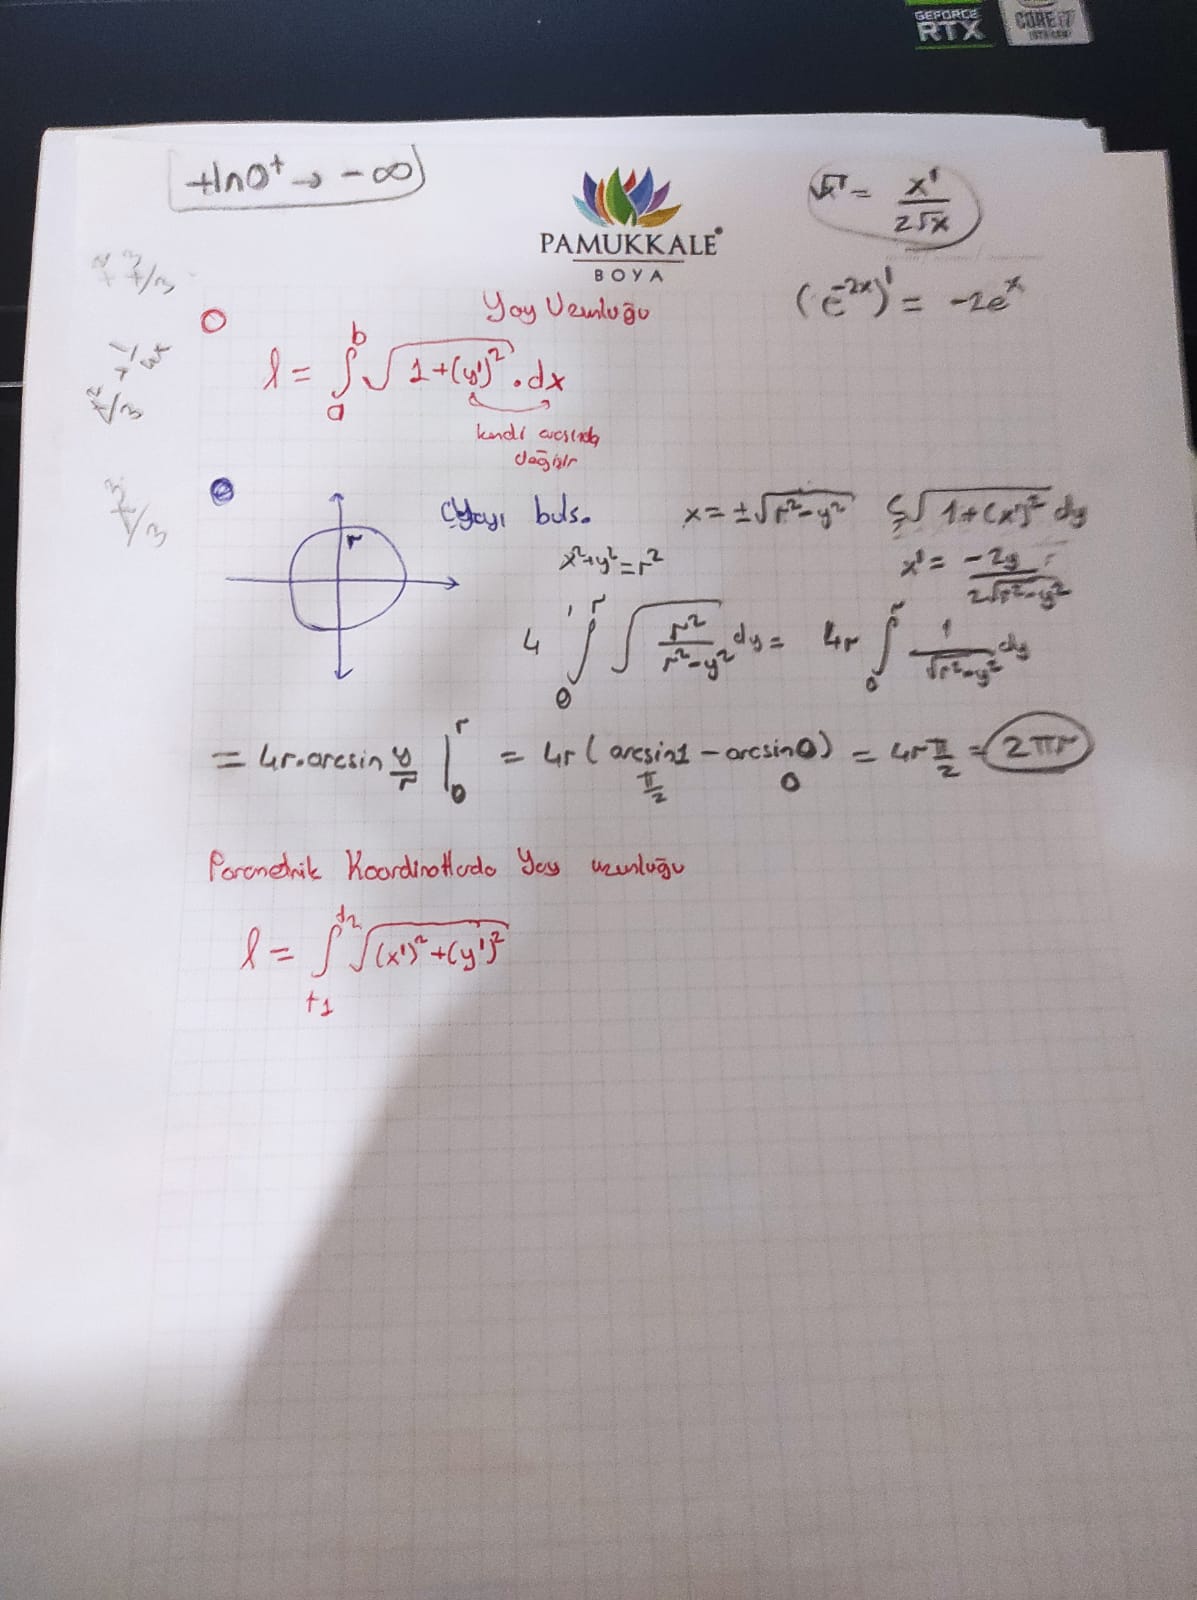 GEFORCE
RTX
CORE i7
+ln0⁺ → -∞
√x' = x'/(2√x)
PAMUKKALE
BOYA
(e^(-2x))' = -2e^x
Yay Uzunluğu
l = ∫_a^b √(1+(y')²) . dx
kendi arasında
değişir
Çyayı buls.
x = ±√(r²-y²)
S√(1+(x')²) dy
x²+y²=r²
x' = -2y/(2√(r²-y²))
4 ∫_0^r √(r²/(r²-y²)) dy = 4r ∫_0^r 1/√(r²-y²) dy
= 4r.arcsin y/r |_0^r = 4r (arcsin1 - arcsin0) = 4r π/2 = 2πr
π/2 0
r
Parametrik Koordinatlarda Yay uzunluğu
l = ∫_t1^t2 √((x')²+(y')²)